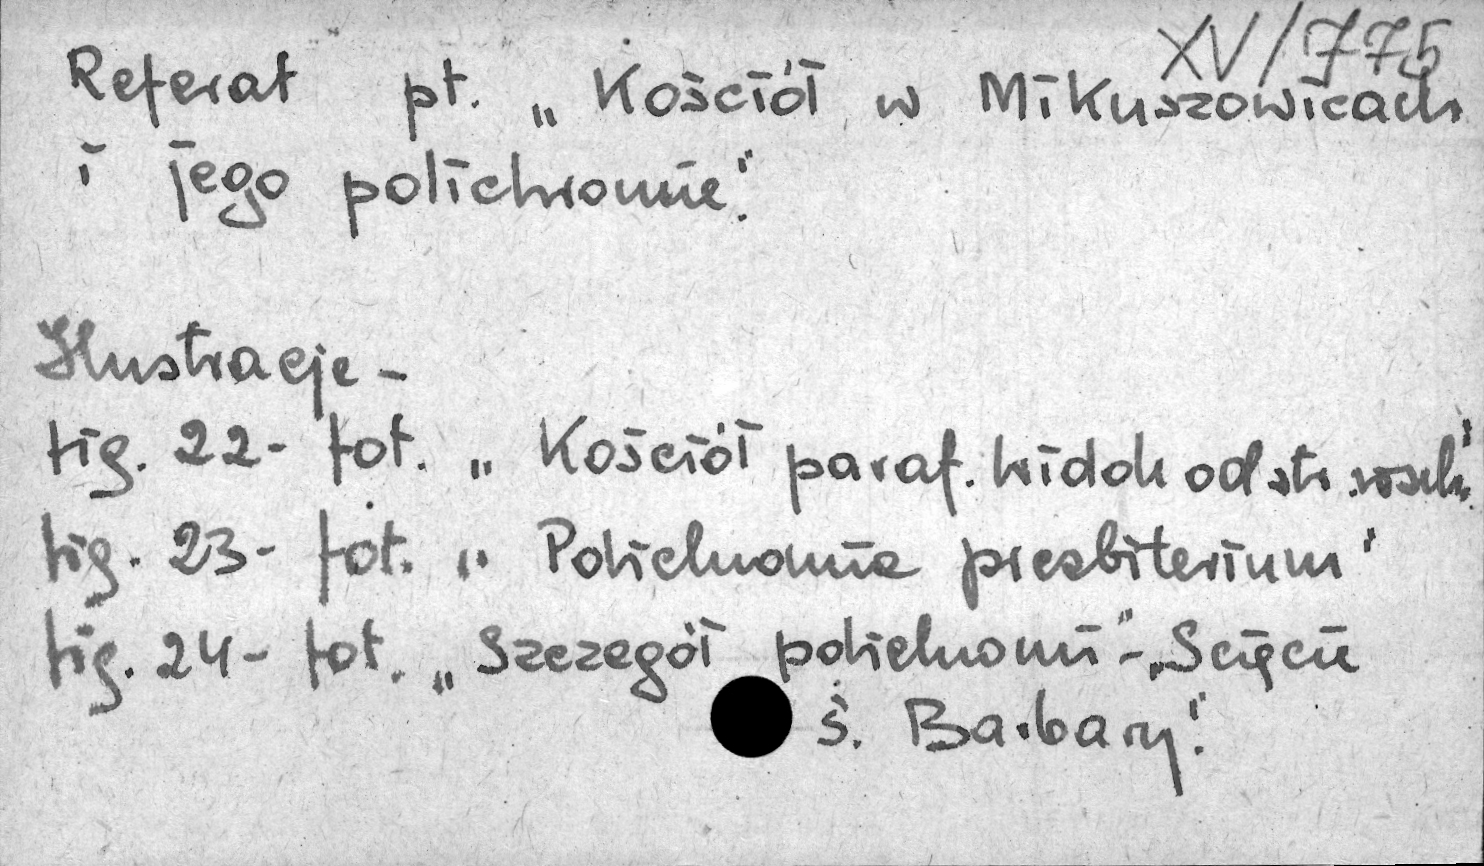 XV/775
Referat pt. „Kościół w Mikuszowicach
i jego polichromie".
Ilustracje -
fig. 22 - fot. „Kościół paraf. widok od str. wsch."
fig. 23 - fot. „Polichromie presbiterium"
fig. 24 - fot. „Szczegół polichromii" - „Ścięcie
ś. Barbary".